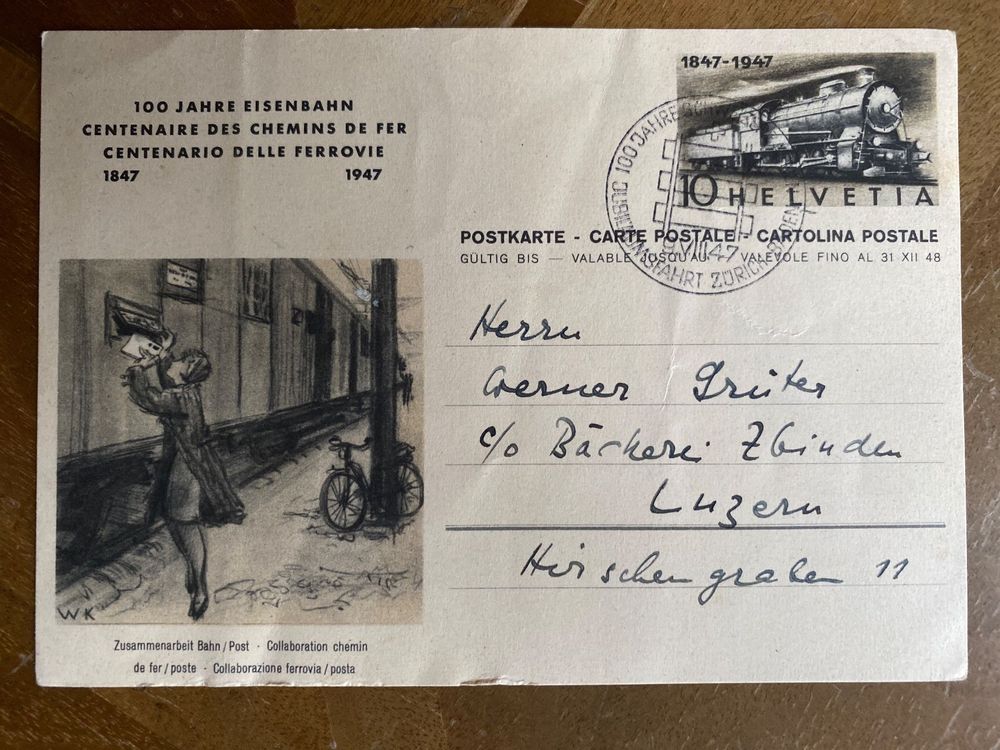 100 JAHRE EISENBAHN
CENTENAIRE DES CHEMINS DE FER
CENTENARIO DELLE FERROVIE
1847 1947
1847-1947
10 HELVETIA
100 JAHRE
JUBILÄUMSFAHRT ZÜRICH
POSTKARTE - CARTE POSTALE - CARTOLINA POSTALE
GÜLTIG BIS — VALABLE JUSQU'AU — VALEVOLE FINO AL 31 XII 48
Herrn
Werner Grüter
c/o Bäckerei Zbinden
Luzern
Hirschengraben 11
WK
Zusammenarbeit Bahn/Post · Collaboration chemin
de fer/poste · Collaborazione ferrovia/posta